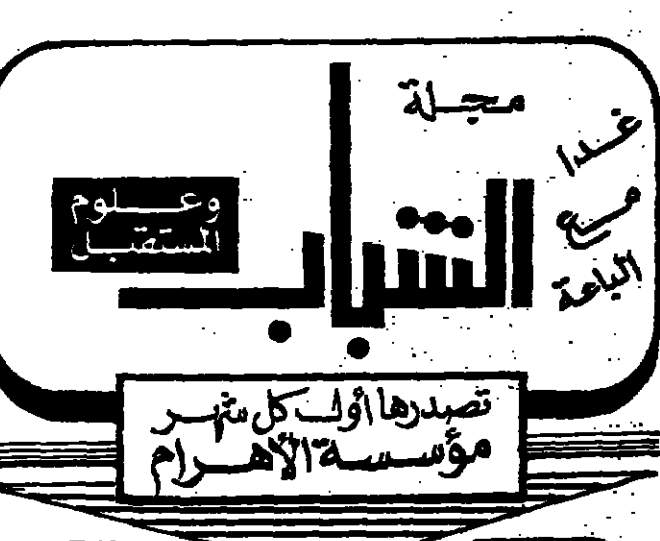 غدا
مع
الباعة
مجلة
الشباب
وعلوم
المستقبل
تصدرها أول كل شهر
مؤسسة الأهرام